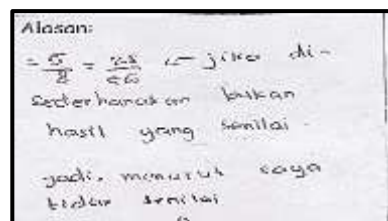 Alasan:
= 5/8 = 25/ ← jika di-
sederhanakan bukan
hasil yang senilai.
jadi, menurut saya
tidak senilai